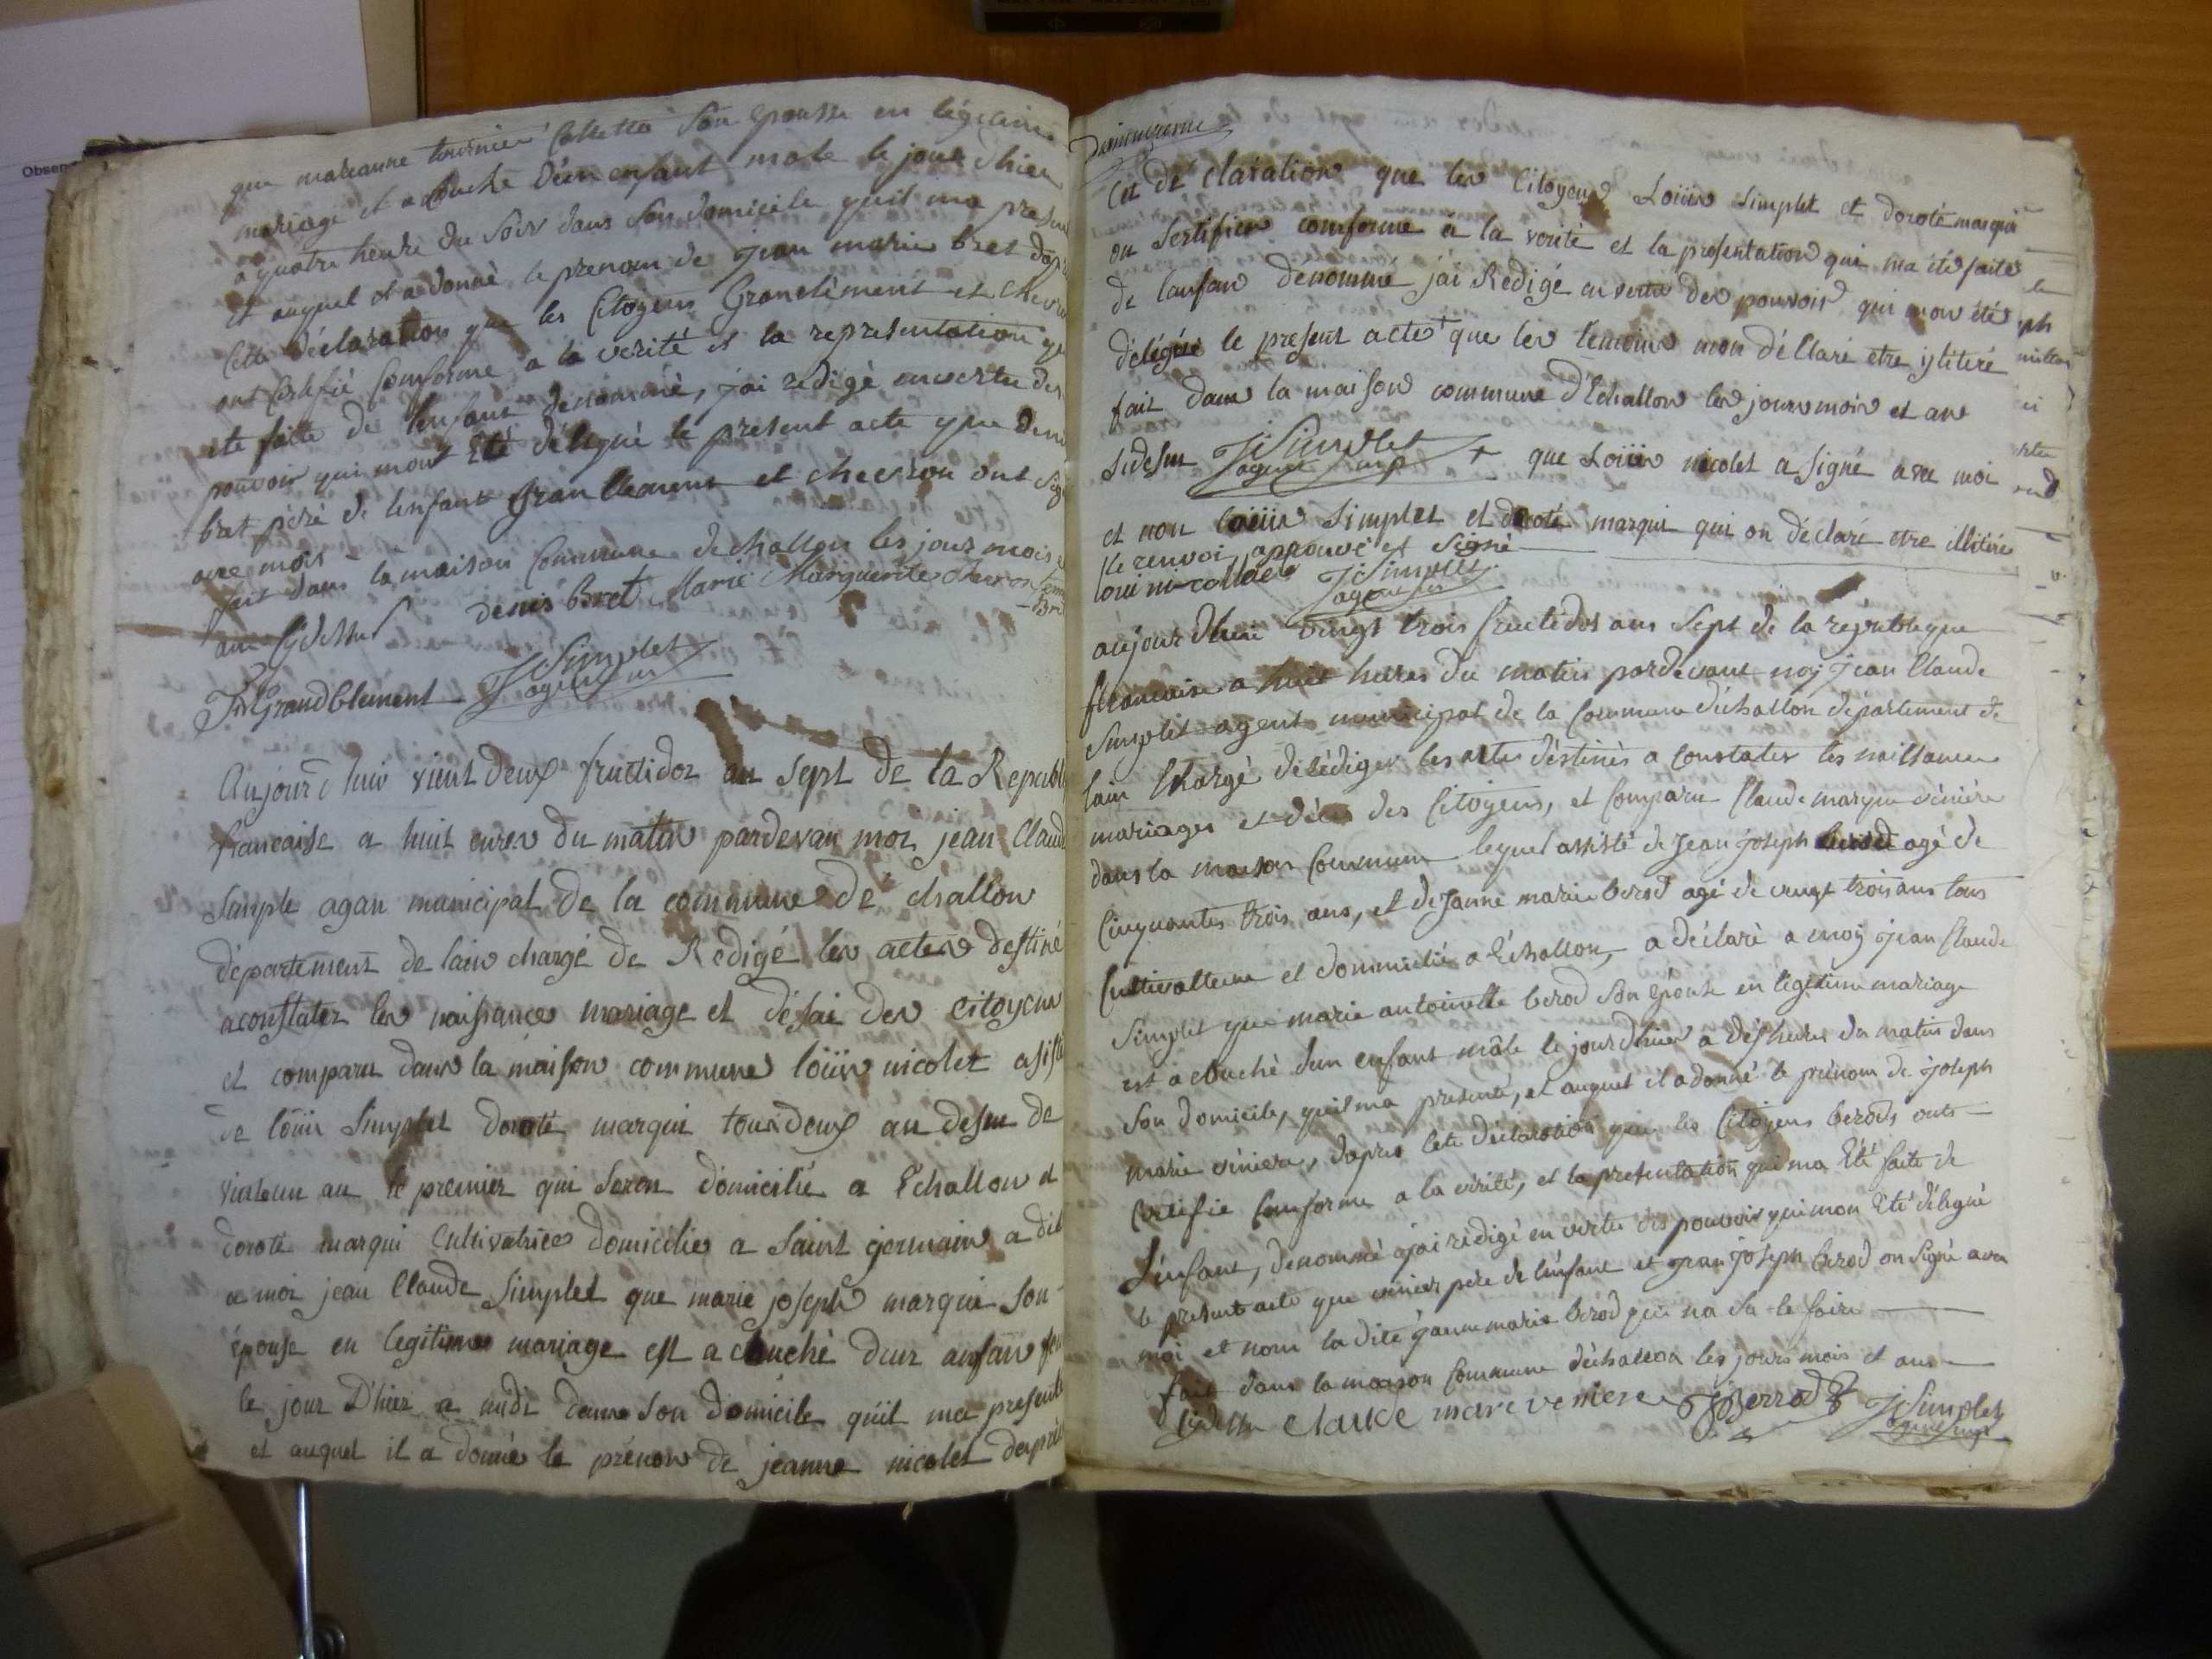 Obser
que marianne tournier Collette son epousse en légitime
mariage et acouché d'un enfant male le jour d'hier
a quatre heure du soir dans son domicile quil ma presen
et auquel il a donné le prenom de jean marie bret dap
cette déclaration que les Citoyens Grandclement et chevron
ont certifié conforme a la verité et la representation qu
ete faite de lenfant denommé, j'ai redigé envertu des
pouvoir qui mont Eté délegué le present acte que deni
bret pére de lenfant Grandclement et chevron ont sig
avec moi
fait dans la maison Commune dechallon les jour mois
an sydessus denis Bret Marie Marguerite chevron
Grandclement JSimplet agent
Aujourd huiv vient deux fructidor an sept de la Republ
francaise a huit eures du matin pardevan moi jean Claud
Simple agan municipal de la commune dé challon
département de lain chargé de Redigé les actes destiné
aconstater les naissance mariage et désai des citoyens
et comparu dans la maison commune loüis nicolet asist
de loüis Simplet doroté marqui tous deux au desu de
vinteun an le premier qui seren domicilié a Echallon et
doroté marqui cultivatrice domicilie a saint germain a dit
a moi jean Claude Simplet que marie joseph marqui son
épouse en legitime mariage est a couché dun anfan fem
le jour D'hier a midi dans son domicile quil ma presente
et auquel il a donné le prénom de jeanne nicolet daprés
cet dé claration que les Citoyens Loüis Simplet et doroté marqui
on sertifier comforme a la verité et la presentation qui ma été faite
de lanfan denomme j'ai Redigé en vertu des pouvoir qui mon été
délégué le present acte + que les temoins mon déclaré etre yliteré
fait dans la maison commune d'Echallon les jour mois et an
sidesu JSimplet agent mp + que Loüis nicolet a signé avec moi
et non loüis Simplet et doroté marqui qui on déclaré etre illitéré
le renvoi aprouvé et signé
loui nicollet JSimplet agent
aujourdhui vingt trois fructidor ans sept de la republique
francaise a huit heures du matin pardevant moy jean Claude
Simplet agent municipal de la Commune déchallon département de
lain Chargé de rédiger les actes déstinés a constater les naissances
mariages et décés des Citoyens, et Comparu Claude marque vénière
dans la maison Commune lequel assisté de Jean joseph berod agé de
Cinquantes trois ans, et de Janne marie berod agé de vingt trois ans tous
Cultivatteure et dommicilié a Echallon, a déclaré a moy jean Claude
Simplet que marie antoinette berod son épouse en légitime mariage
est acouché dun enfant mâle le jour dhier a dés heures du matin dans
son domicile, quil ma presenté, et auquel il a donné le prénom de joseph
marie véniere, dapres cete déclaration que les Citoyens berods onts
Certifie Comforme a la vérité, et la presentation qui ma Eté faite de
L'enfant, denommé j'ai redigé en vertu des pouvoir qui mon Eté délegué
le present acte que venier pére de l'enfant et jean joseph berod on signé avec
moi et nom la dite janne marie berod qui na su le faire
fait dans la maison Commune déchallon les jours mois et ans
sydessu claude marc veniere JJBerrod JSimplet agent